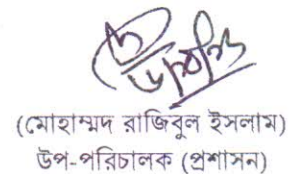 (মোহাম্মদ রাজিবুল ইসলাম)
উপ-পরিচালক (প্রশাসন)